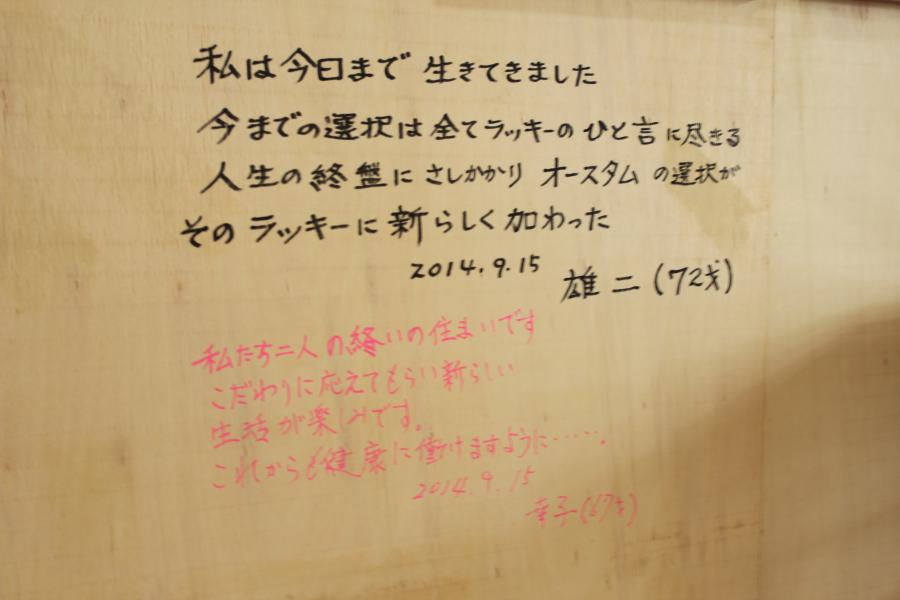 私は今日まで 生きてきました
今までの選択は全てラッキーの ひと言に尽きる
人生の終盤に さしかかり オースタムの選択が
そのラッキーに新らしく加わった
2014.9.15
雄二(72才)
私たち二人の終いの住まいです
こだわりに応えてもらい新らしい
生活が楽しみです。
これからも健康に働けますように……。
2014.9.15
幸子(67才)